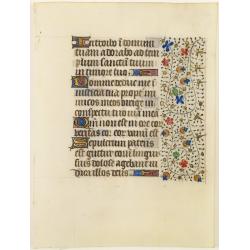 Introibo i domum
tuam adorabo ad tem
plum sanctū tuum
in timore tuo
Domine deduc me i
iusticia tua propt ini
micos meos dirige in
conspectu tuo viā meā
Qm non est in ore eor
veritas cor eor vanū est
Sepulcrum patens
est guttur eorū linguis
suis dolose agebant iu
dica illos deus